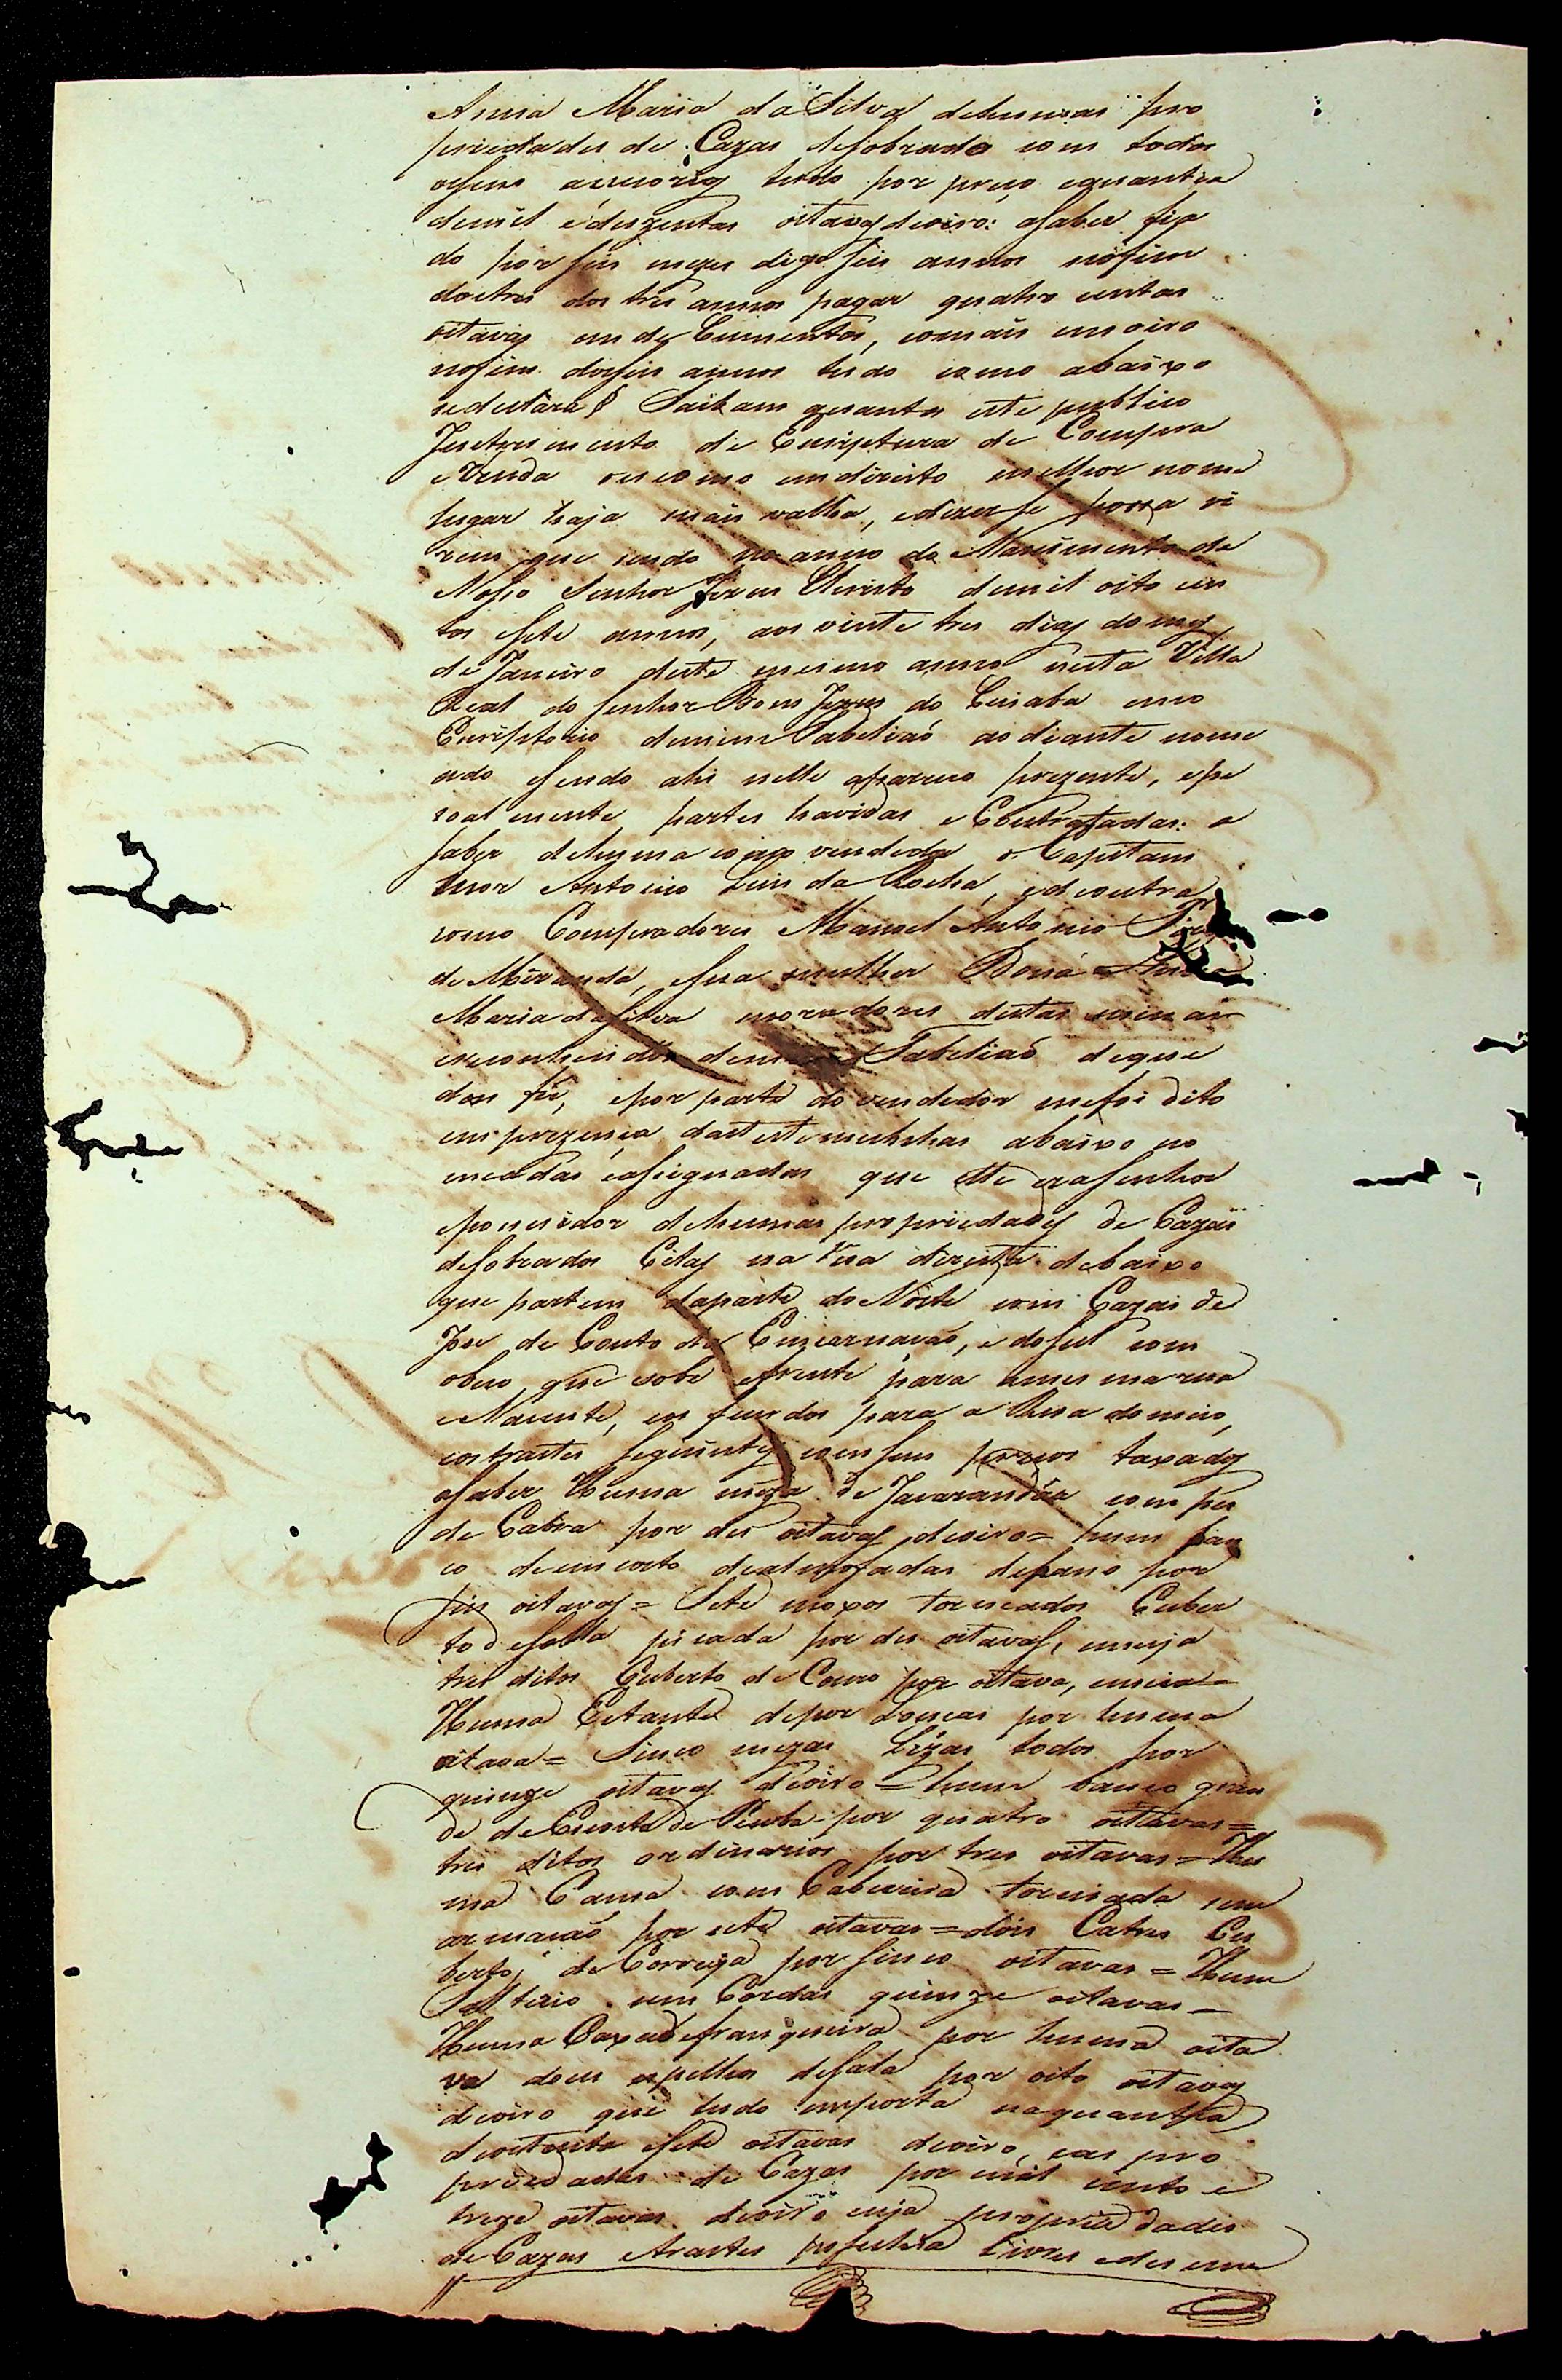 Anna Maria da Silva dehumas pro
priedades de Cazas desobrado com todos
osseus acceorios tudo por preço equantia
demil eduzentas oitavas deoiro: asaber fia
do por seis mezes digo seis annos nofim
doutres dos tres annos pagar quatro centas
oitavas emde Cumentos, eomais emoiro
nofim dosseis annos tudo como abaixo
sedeclara § Saibam quantos este publico
Instrumento de Escriptura de Compra
evenda ou como emdireito melhor nome
lugar haja mais valha, edizerse possa vi
rem que sendo no anno do Nascimento de
Nosso Senhor Jezus Christo demil oito cen
tos esete annos, aos vinte tres dias do mez
de Janeiro deste mesmo anno nesta Villa
Real do Senhor Bom Jezus do Cuiaba emo
Escriptorio demim Tabeliaõ aodiante nome
ado esendo ahi nelle apareceo prezente, epe
soal mente partes havidas e Contratadas: a
saber dehuma como vendedor o Capitam
mor Antonio Luis da Rocha, edeoutra
como Compradores Manoel Antonio
de Miranda, esua mulher Dona Anna
Maria daSilva moradores destas minas
ereconhecidos demim Tabeliaõ deque
dou fé, epor parte do vendedor mefoi dito
emprezença dastestemunhas abaixo no
meadas easignadas que elle erasenhor
epossuidor dehumas propriedades de Cazas
desobrados Citas na rua direita debaixo
que partem daparte doNorte com Cazas de
Joze de Couto da Encarnacaõ, e dosul com
obeco que sobe efrente para amesmarua
e Nacente, eos fundos para a Rua domeio,
eostrastes seguintes comseus preços taxados
asaber Huma meza de Jacarandáa com pes
de Cabra por des oitavas deoiro= hum ban
co deemcosto dealmofadas depano por
seis oitavas= Sete moxos torneados Cuber
to desolla picada por des oitavas, emeja
tres ditos Cuberto de Couro por oitava, emeia=
Huma Estante depor Loucas por huma
oitava= Sinco mezas Lizas todos por
quinze oitavas deoiro= hum banco gran
de de Encosto de Peroba por quatro oitavas=
tres ditos ordinarios por tres oitavas= Hu
ma Cama com Cabeceira torniada sem
armacaõ por sete oitavas= dois Catres Cu
bertos de Correya por sinco oitavas= Hum
Salterio sem Cordas quinze oitavas=
Huma Caxa defrasqueira por huma oita
va dous espelhos desala por oito oitavas
deoiro que tudo importa naquantia
deoitenta esete oitavas deoiro, eas pro
priedades de Cazas por mil cento e
treze oitavas deoiro cuja propriedades
de Cazas etrastes livres edesem